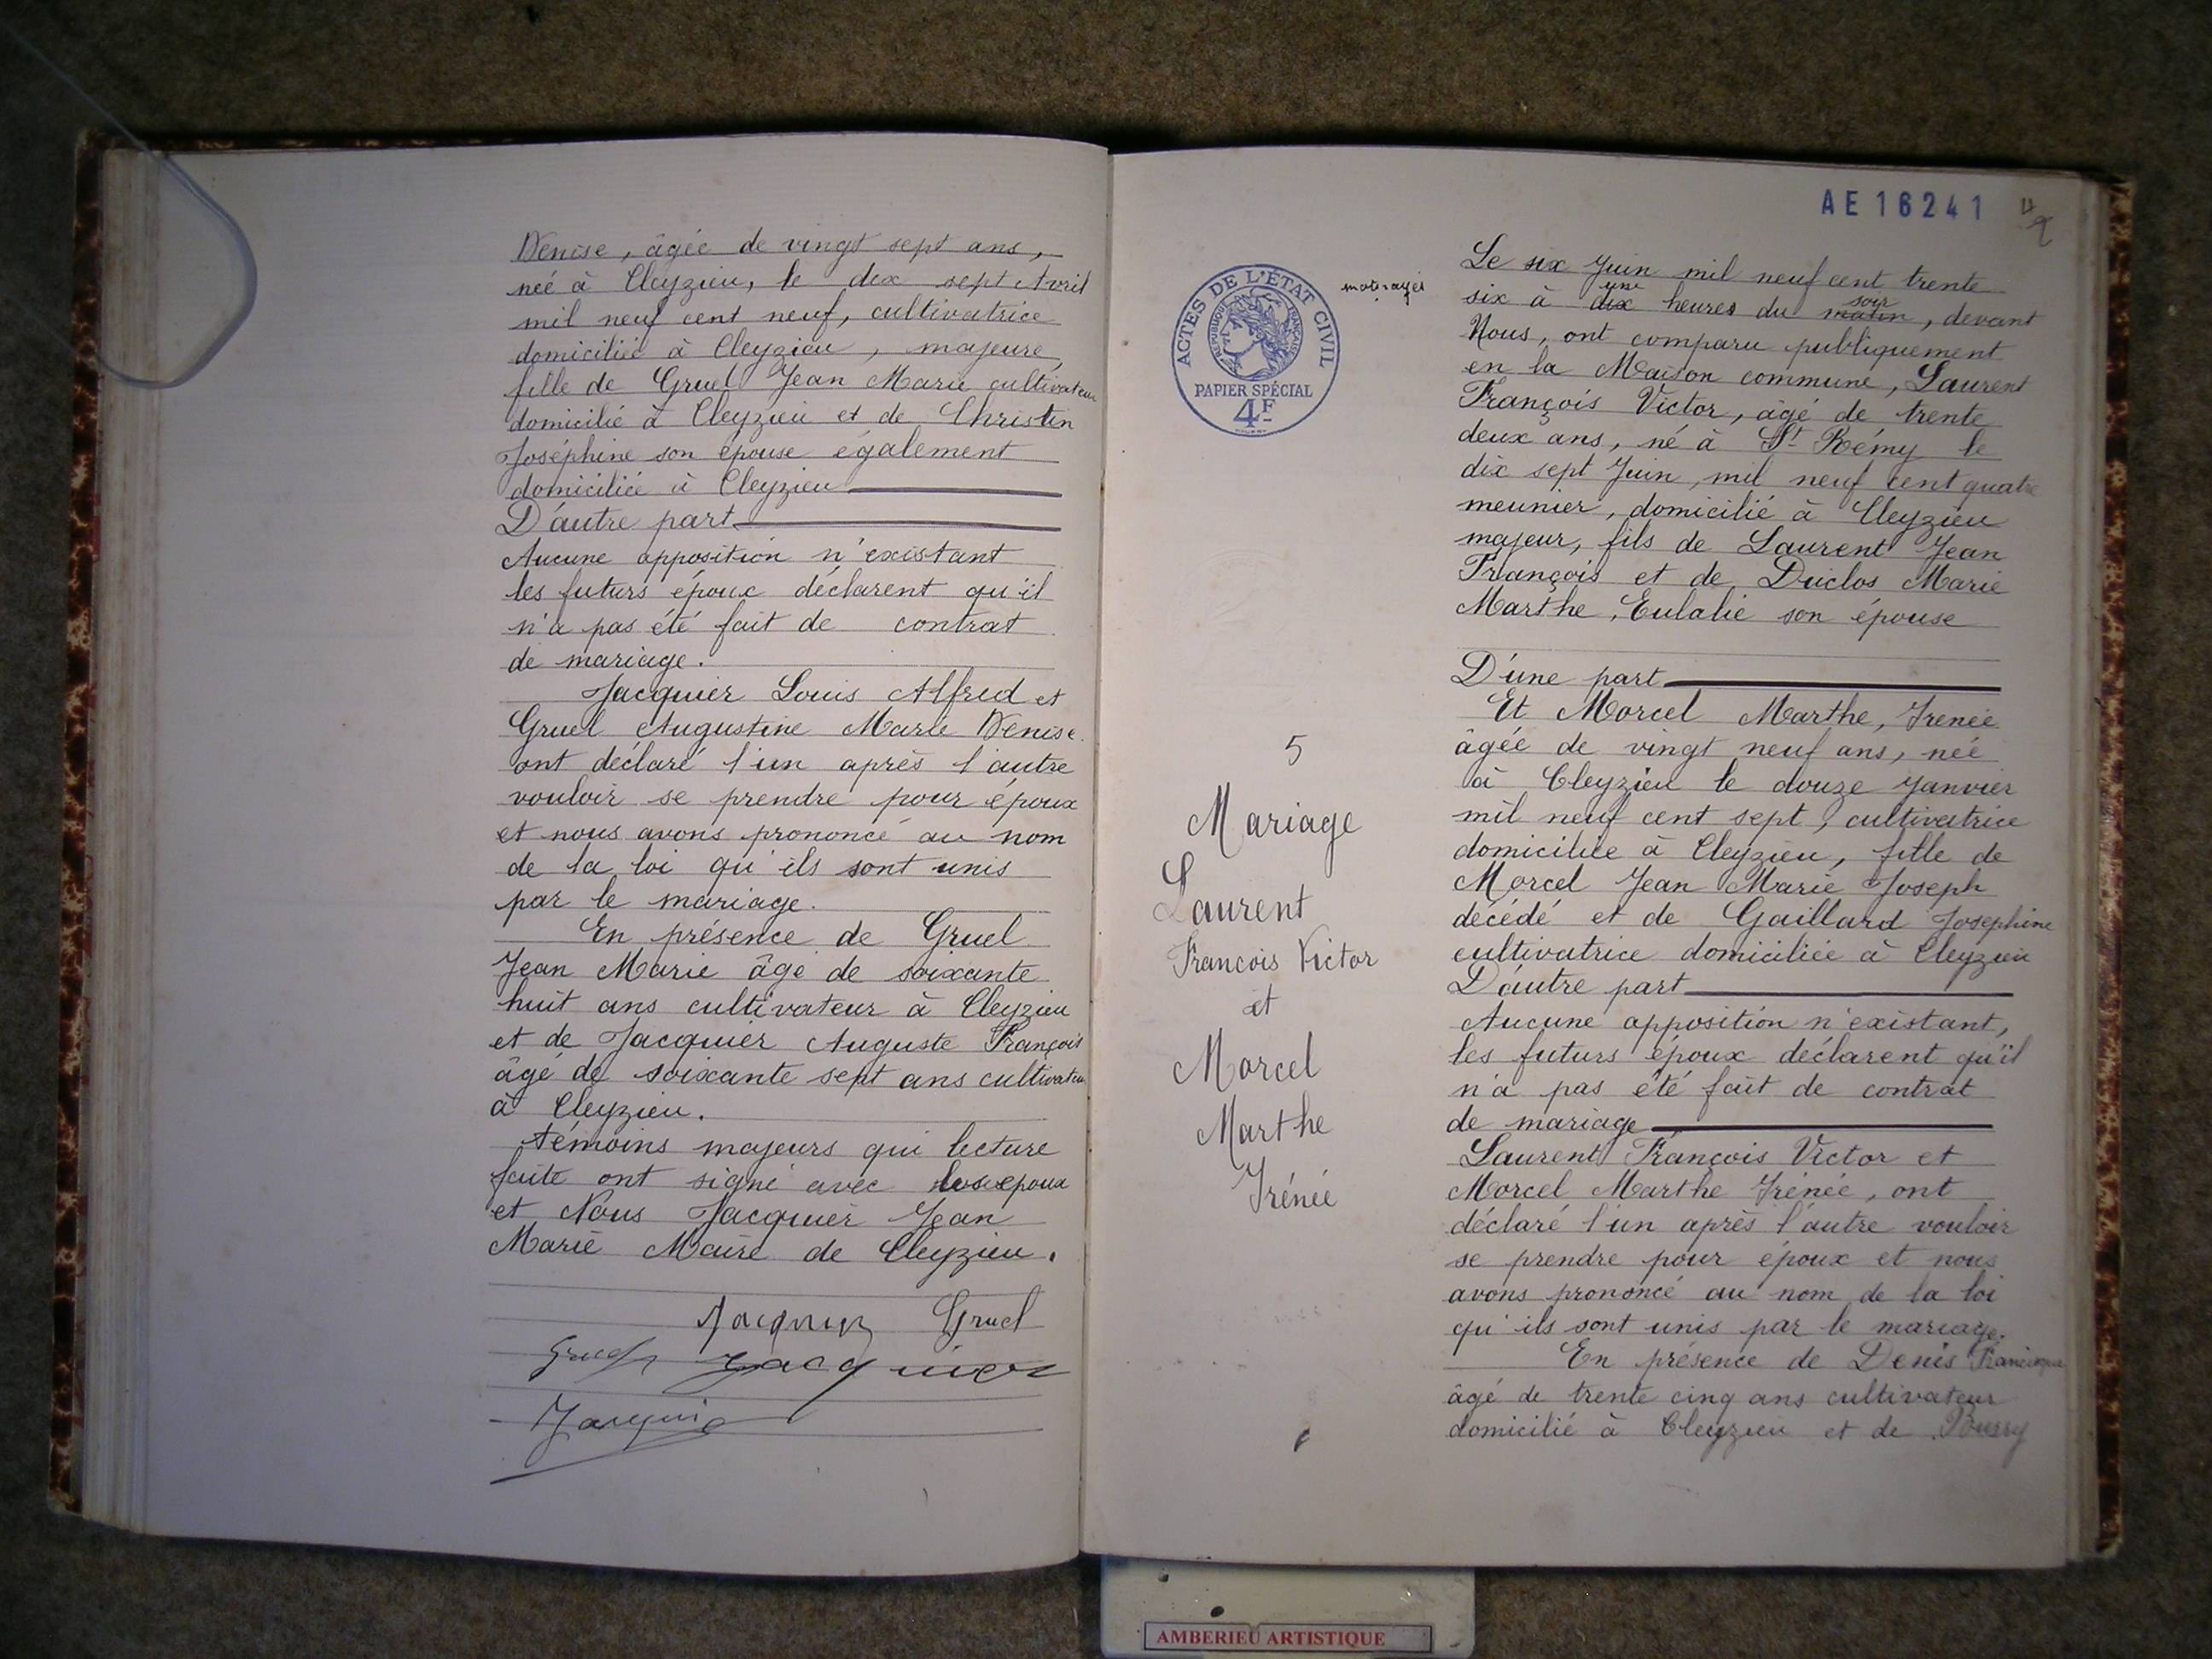 Denise, âgée de vingt sept ans,
née à Cleyzieu, le dix sept Avril
mil neuf cent neuf, cultivatrice
domiciliée à Cleyzieu, majeure,
fille de Gruel Jean Marie cultivateur
domicilié à Cleyzieu et de Christin
Joséphine son épouse également
domiciliée à Cleyzieu
D'autre part
Aucune opposition n'existant
les futurs époux déclarent qu'il
n'a pas été fait de contrat
de mariage.
Jacquier Louis Alfred et
Gruel Augustine Marie Denise
ont déclaré l'un après l'autre
vouloir se prendre pour époux
et nous avons prononcé au nom
de la loi qu'ils sont unis
par le mariage.
En présence de Gruel
Jean Marie âgé de soixante
huit ans cultivateur à Cleyzieu
et de Jacquier Auguste François
âgé de soixante sept ans cultivateur
à Cleyzieu.
témoins majeurs qui lecture
faite ont signé avec les époux
et Nous Jacquier Jean
Marie Maire de Cleyzieu.
Jacquier Gruel
Gruel Jacquier
Jacquier
AE16241
ACTES DE L'ÉTAT CIVIL
RÉPUBLIQUE FRANÇAISE
PAPIER SPÉCIAL
4F
mariages
5
Mariage
Laurent
Francois Victor
et
Morcel
Marthe
Irénée
Le six Juin mil neuf cent trente
six à dix une heures du matin soir, devant
Nous, ont comparu publiquement
en la Maison commune, Laurent
François Victor, âgé de trente
deux ans, né à St Rémy le
dix sept Juin, mil neuf cent quatre
meunier, domicilié à Cleyzieu
majeur, fils de Laurent Jean
François et de Duclos Marie
Marthe, Eulalie son épouse
D'une part
Et Morcel Marthe, Irenée
âgée de vingt neuf ans, née
à Cleyzieu le douze Janvier
mil neuf cent sept, cultivatrice
domiciliée à Cleyzieu, fille de
Morcel Jean Marie Joseph
décédé et de Gaillard Josephine
cultivatrice domiciliée à Cleyzieu
D'autre part
Aucune opposition n'existant,
les futurs époux déclarent qu'il
n'a pas été fait de contrat
de mariage
Laurent François Victor et
Morcel Marthe Irénée, ont
déclaré l'un après l'autre vouloir
se prendre pour époux et nous
avons prononcé au nom de la loi
qu'ils sont unis par le mariage.
En présence de Denis
âgé de trente cinq ans cultivateur
domicilié à Cleyzieu et de
AMBERIEU ARTISTIQUE